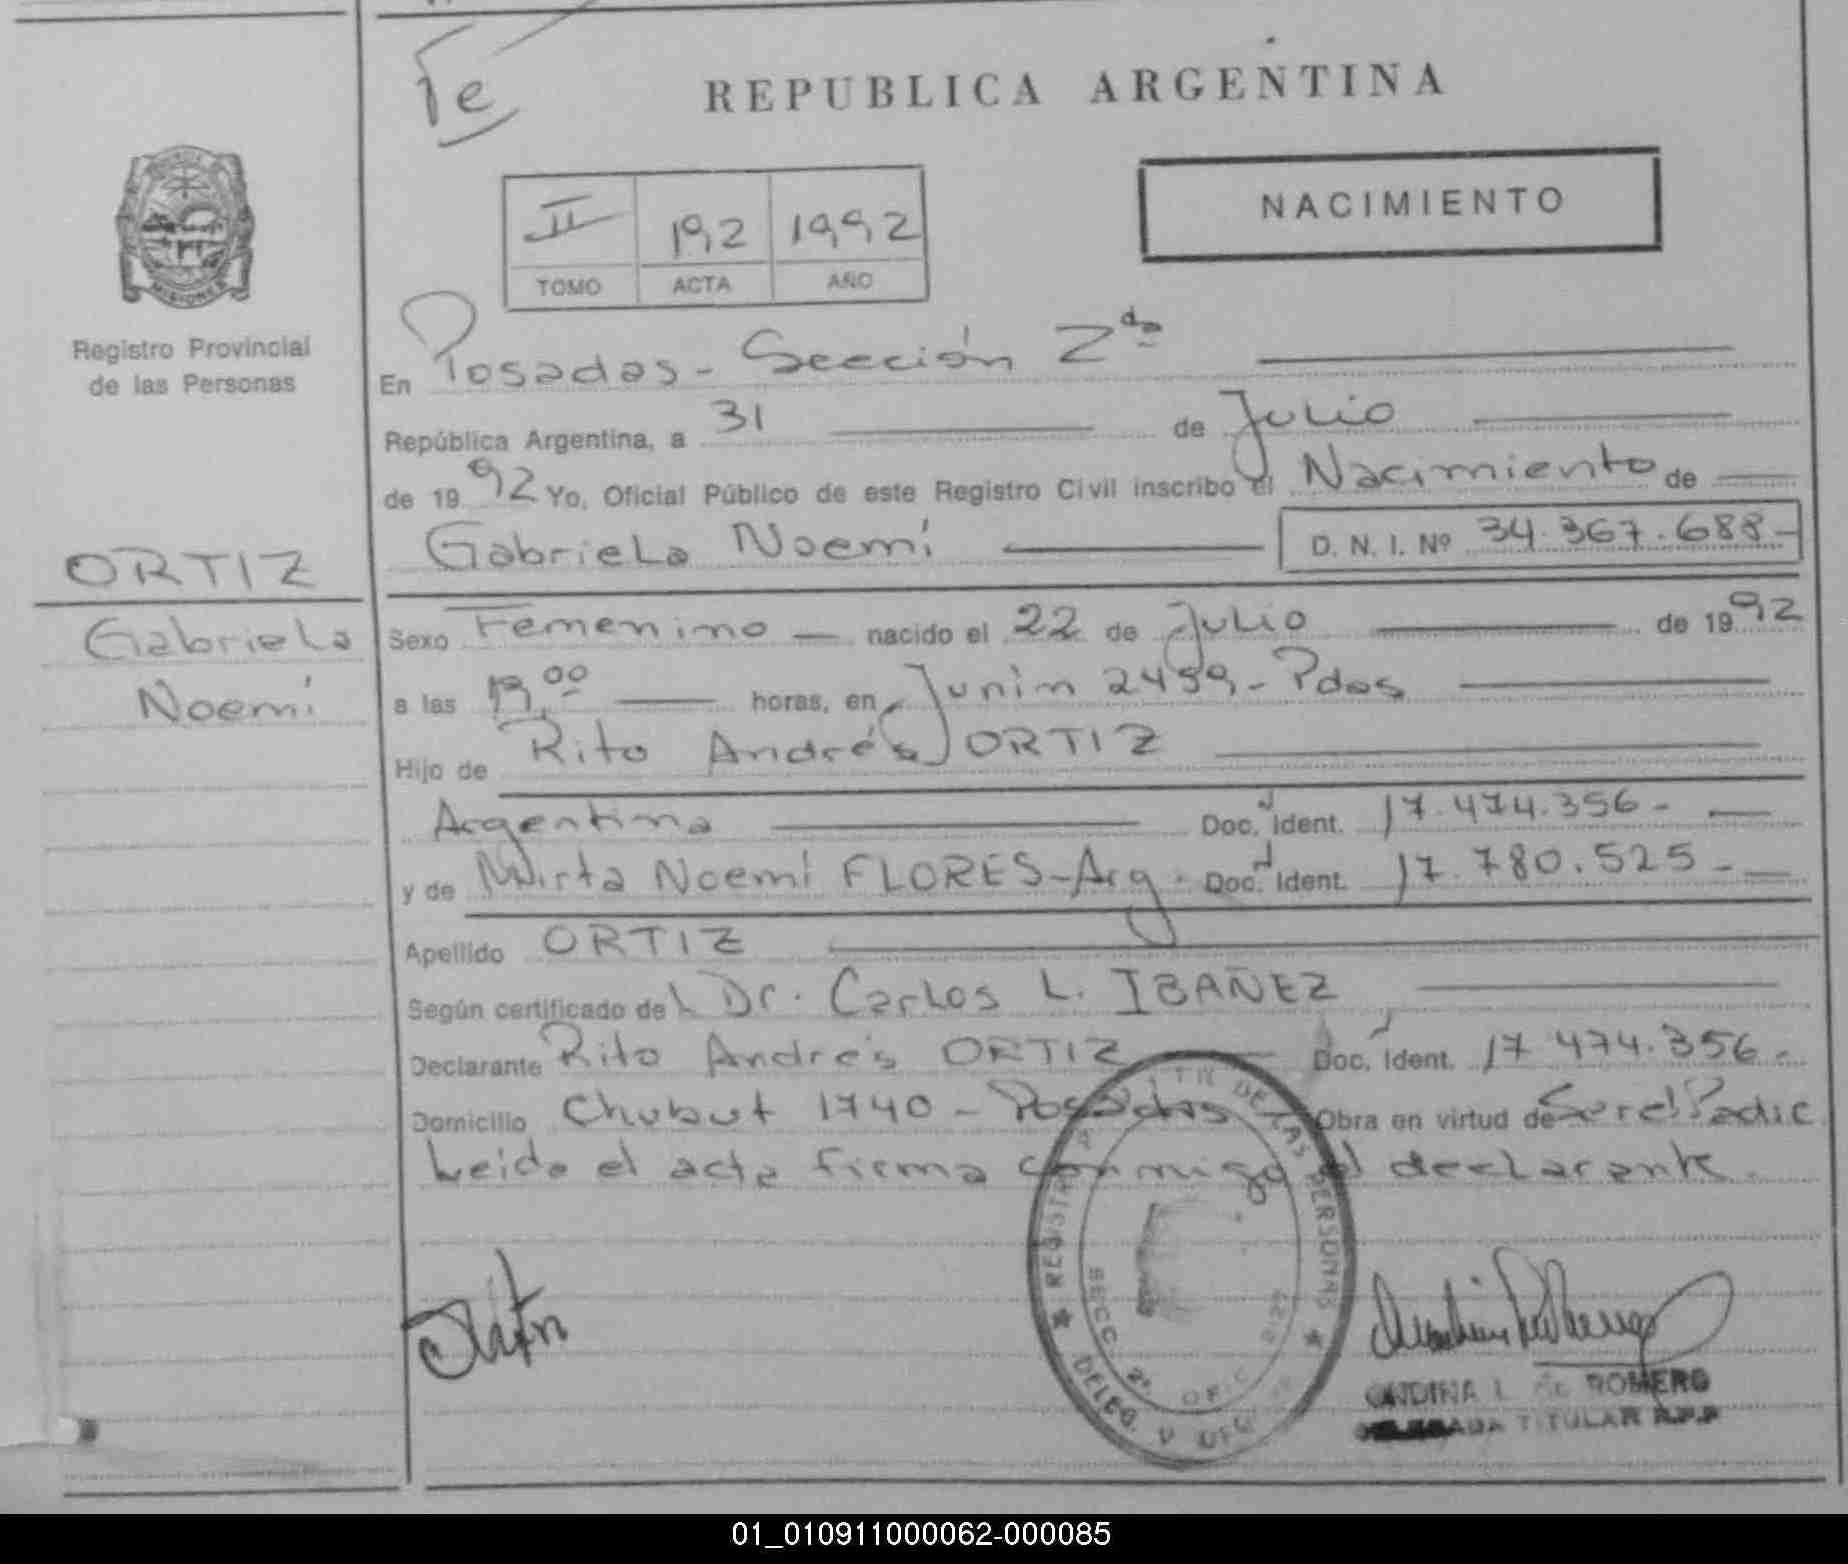 1e
REPUBLICA ARGENTINA
NACIMIENTO
II 192 1992
TOMO ACTA AÑO
MISIONES
Registro Provincial
de las Personas
ORTIZ
Gabriela
Noemí
En Posadas - Sección 2da
República Argentina, a 31 de Julio
de 1992 Yo, Oficial Público de este Registro Civil inscribo el Nacimiento de
Gabriela Noemí D. N. I. Nº 34.367.688-
Sexo Femenino — nacido el 22 de Julio de 1992
a las 19,00 horas, en Junin 2459,- Pdas
Hijo de Rito Andrés ORTIZ
Argentina Doc. Ident. 17.474.356-
y de Mirta Noemí FLORES-Arg. Doc. Ident. 17.780.525-
Apellido ORTIZ
Según certificado del Dr. Carlos L. IBAÑEZ
Declarante Rito Andrés ORTIZ Doc. Ident. 17 474.356-
Domicilio Chubut 1740 - Posadas Obra en virtud de Ser el Padre
Leida el acta firma conmigo el declarante.
REGISTRO DE LAS PERSONAS
SECC. 2ª
ONDINA L. de ROMERO
DELEGADA TITULAR R.P.P
01_010911000062-000085